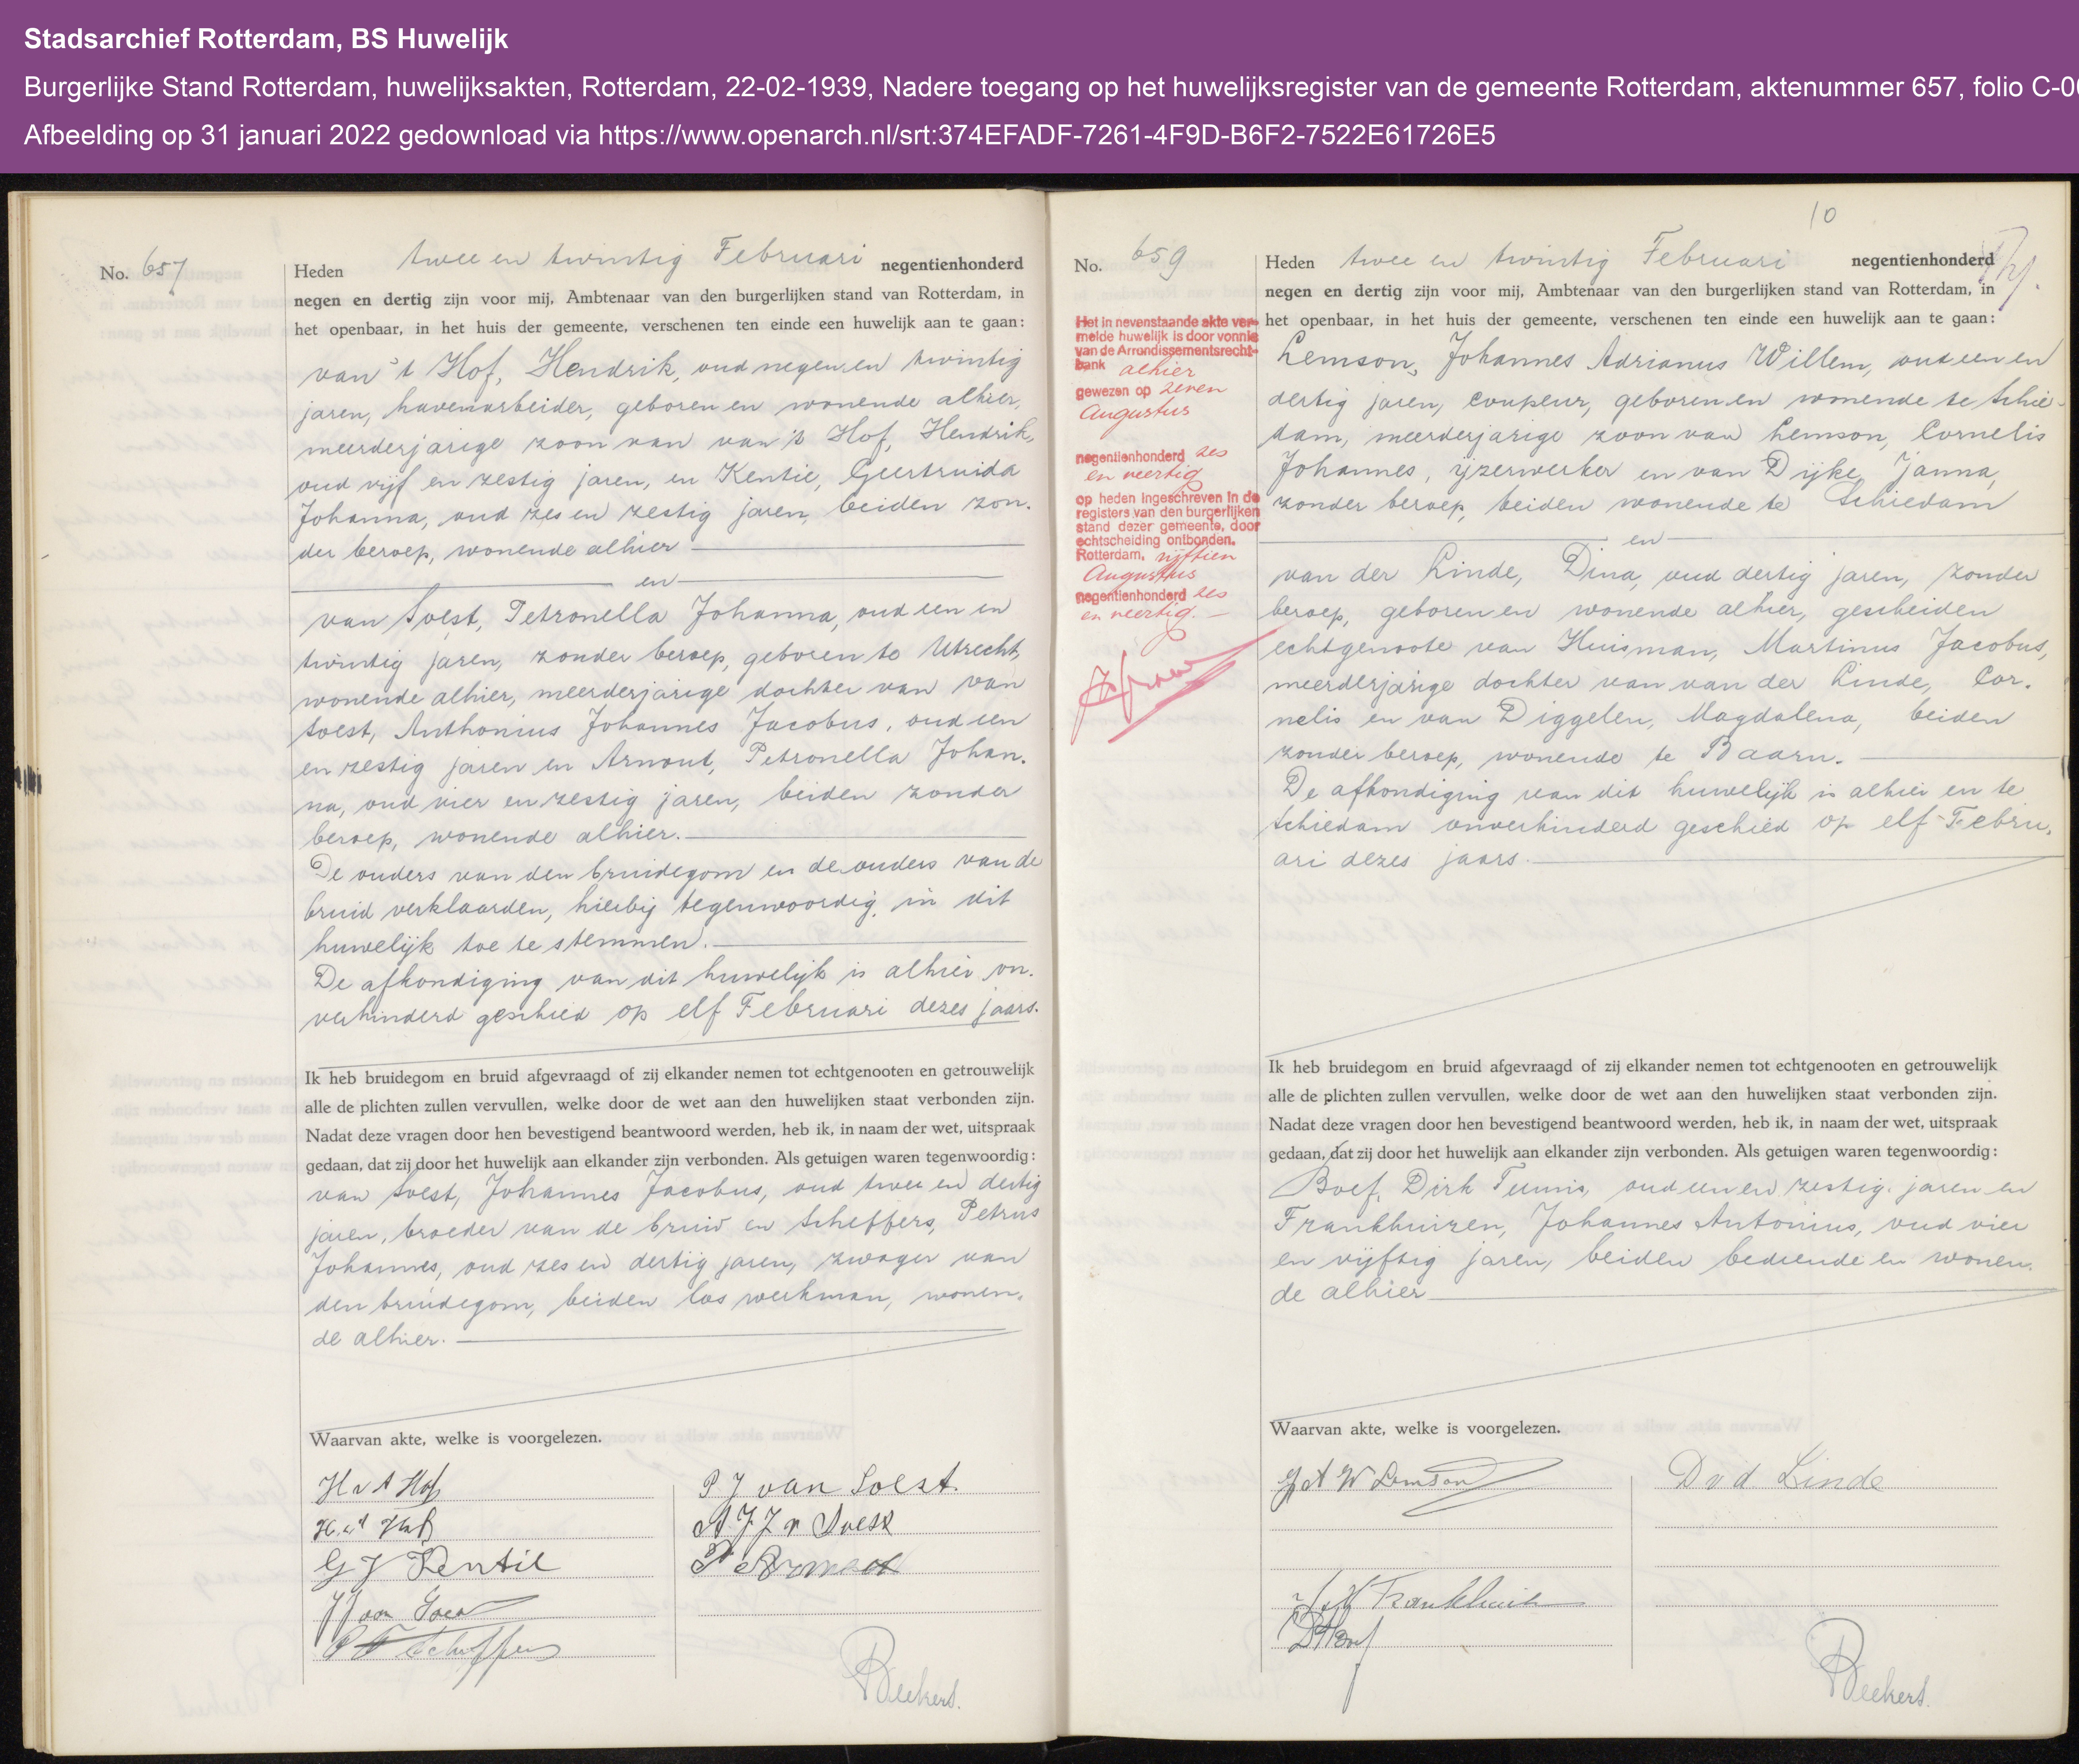 Stadsarchief Rotterdam, BS Huwelijk
Burgerlijke Stand Rotterdam, huwelijksakten, Rotterdam, 22-02-1939, Nadere toegang op het huwelijksregister van de gemeente Rotterdam, aktenummer 657, folio C-0
Afbeelding op 31 januari 2022 gedownload via https://www.openarch.nl/srt:374EFADF-7261-4F9D-B6F2-7522E61726E5
No. 657
Heden twee en twintig Februari negentienhonderd
negen en dertig zijn voor mij, Ambtenaar van den burgerlijken stand van Rotterdam, in
het openbaar, in het huis der gemeente, verschenen ten einde een huwelijk aan te gaan:
van 't Hof, Hendrik, oud negen en twintig
jaren, havenarbeider, geboren en wonende alhier,
meerderjarige zoon van van 't Hof, Hendrik,
oud vijf en zestig jaren, en Kentie, Geertruida
Johanna, oud zes en zestig jaren, beiden zon-
der beroep, wonende alhier
en
van Soest, Petronella Johanna, oud een en
twintig jaren, zonder beroep, geboren te Utrecht,
wonende alhier, meerderjarige dochter van van
Soest, Anthonius Johannes Jacobus, oud een
en zestig jaren en Arnout, Petronella Johan-
na, oud vier en zestig jaren, beiden zonder
beroep, wonende alhier.
De ouders van den bruidegom en de ouders van de
bruid verklaarden, hierbij tegenwoordig, in dit
huwelijk toe te stemmen.
De afkondiging van dit huwelijk is alhier on-
verhinderd geschied op elf Februari dezes jaars.
Ik heb bruidegom en bruid afgevraagd of zij elkander nemen tot echtgenooten en getrouwelijk
alle de plichten zullen vervullen, welke door de wet aan den huwelijken staat verbonden zijn.
Nadat deze vragen door hen bevestigend beantwoord werden, heb ik, in naam der wet, uitspraak
gedaan, dat zij door het huwelijk aan elkander zijn verbonden. Als getuigen waren tegenwoordig:
van Soest, Johannes Jacobus, oud twee en dertig
jaren, broeder van de bruid en Scheffers, Petrus
Johannes, oud zes en dertig jaren, zwager van
den bruidegom, beiden los werkman, wonen-
de alhier.
Waarvan akte, welke is voorgelezen.
H v t Hof
H. v t Hof
G J Kentie
J J van Soest
P J Scheffers
P J van Soest
A J J v Soest
P J Arnout
Beekers.
10
No. 659
Het in nevenstaande akte ver-
melde huwelijk is door vonnis
van de Arrondissementsrecht-
bank alhier
gewezen op zeven
Augustus
negentienhonderd zes
en veertig
op heden ingeschreven in de
registers van den burgerlijken
stand dezer gemeente, door
echtscheiding ontbonden.
Rotterdam, vijftien
Augustus
negentienhonderd zes
en veertig.
Heden twee en twintig Februari negentienhonderd
negen en dertig zijn voor mij, Ambtenaar van den burgerlijken stand van Rotterdam, in
het openbaar, in het huis der gemeente, verschenen ten einde een huwelijk aan te gaan:
Lemson, Johannes Adrianus Willem, oud een en
dertig jaren, coupeur, geboren en wonende te Schie-
dam, meerderjarige zoon van Lemson, Cornelis
Johannes, ijzerwerker en van Dijke, Janna,
zonder beroep, beiden wonende te Schiedam
en
van der Linde, Dina, oud dertig jaren, zonder
beroep, geboren en wonende alhier, gescheiden
echtgenoote van Huisman, Martinus Jacobus,
meerderjarige dochter van van der Linde, Cor-
nelis en van Diggelen, Magdalena, beiden
zonder beroep, wonende te Baarn.
De afkondiging van dit huwelijk is alhier en te
Schiedam onverhinderd geschied op elf Febru-
ari dezes jaars.
Ik heb bruidegom en bruid afgevraagd of zij elkander nemen tot echtgenooten en getrouwelijk
alle de plichten zullen vervullen, welke door de wet aan den huwelijken staat verbonden zijn.
Nadat deze vragen door hen bevestigend beantwoord werden, heb ik, in naam der wet, uitspraak
gedaan, dat zij door het huwelijk aan elkander zijn verbonden. Als getuigen waren tegenwoordig:
Boef, Dirk Teunis, oud een en zestig jaren en
Frankhuizen, Johannes Antonius, oud vier
en vijftig jaren, beiden bediende en wonen-
de alhier
Waarvan akte, welke is voorgelezen.
J A W Lemson
D v d Linde
Beekers.